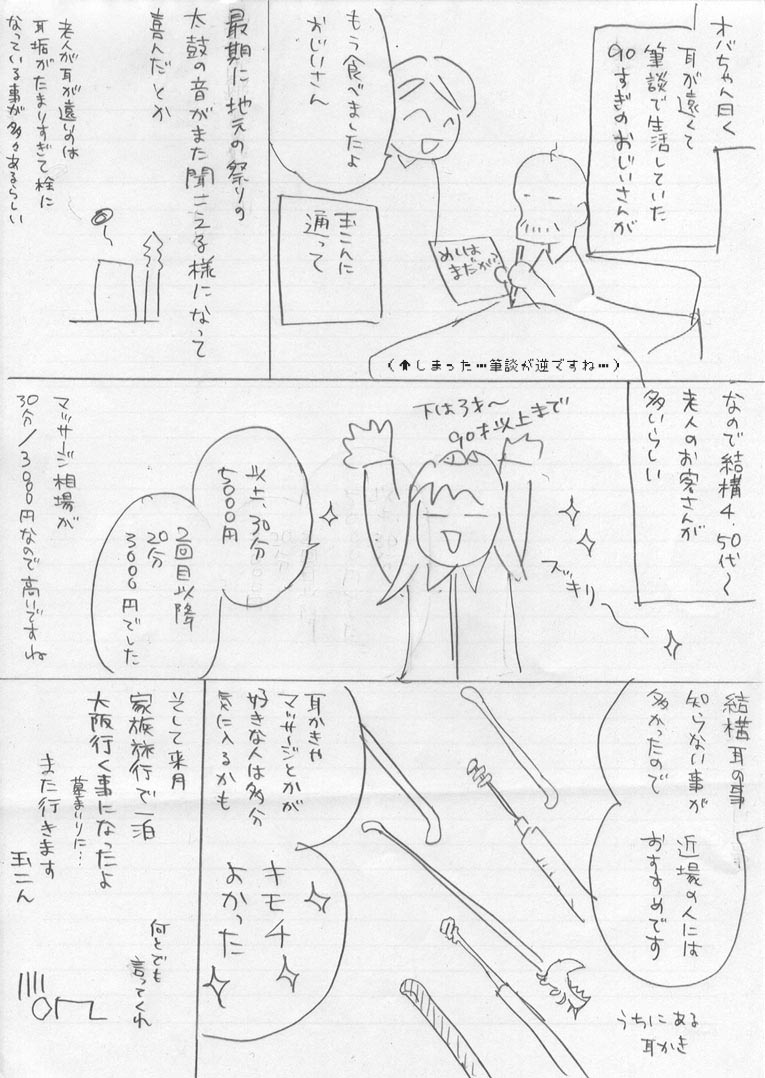 オバちゃん曰く
耳が遠くて
筆談で生活していた
90すぎのおじいさんが
もう食べましたよ
おじいさん
めしは
まだか?
玉こんに
通って
(↑しまった…筆談が逆ですね…)
最期に地元の祭りの
太鼓の音がまた聞こえる様になって
喜んだとか
老人が耳が遠いのは
耳垢がたまりすぎて栓に
なっている事が多々あるらしい
なので結構4、50代〜
老人のお客さんが
多いらしい
下は3才〜
90才以上まで
スッキリ
以上、30分
5000円
2回目以降
20分
3000円でした
マッサージ相場が
30分/3000円なので高いですね
結構耳の事
知らない事が
多かったので
近場の人には
おすすめです
うちにある
耳かき
耳かきや
マッサージとかが
好きな人は多分
気に入るかも
キモチ
よかった
そして来月
家族旅行で一泊
大阪行く事になったよ
墓まいりに…
また行きます
玉こん
何とでも
言ってくれ